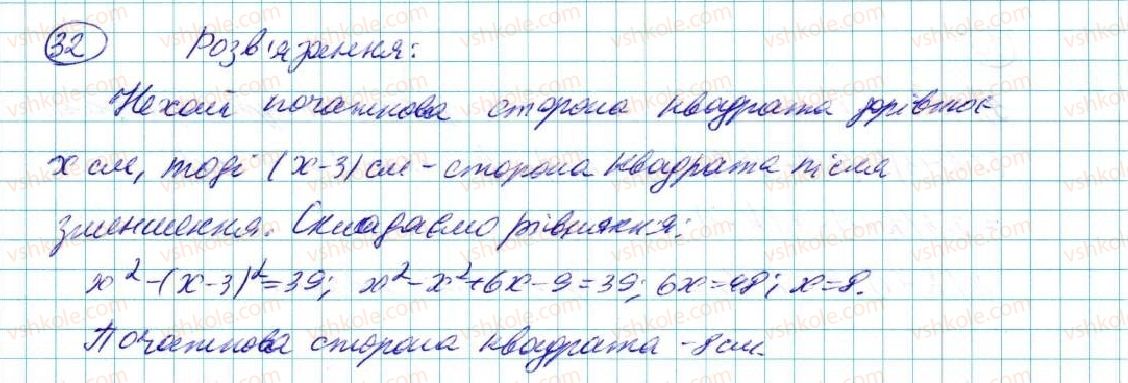 32 Розв'язання:
Нехай початкова сторона квадрата дорівнює
x см, тоді (x-3) см - сторона квадрата після
зменшення. Складаємо рівняння:
x²-(x-3)²=39; x²-x²+6x-9=39; 6x=48; x=8.
Початкова сторона квадрата - 8 см.